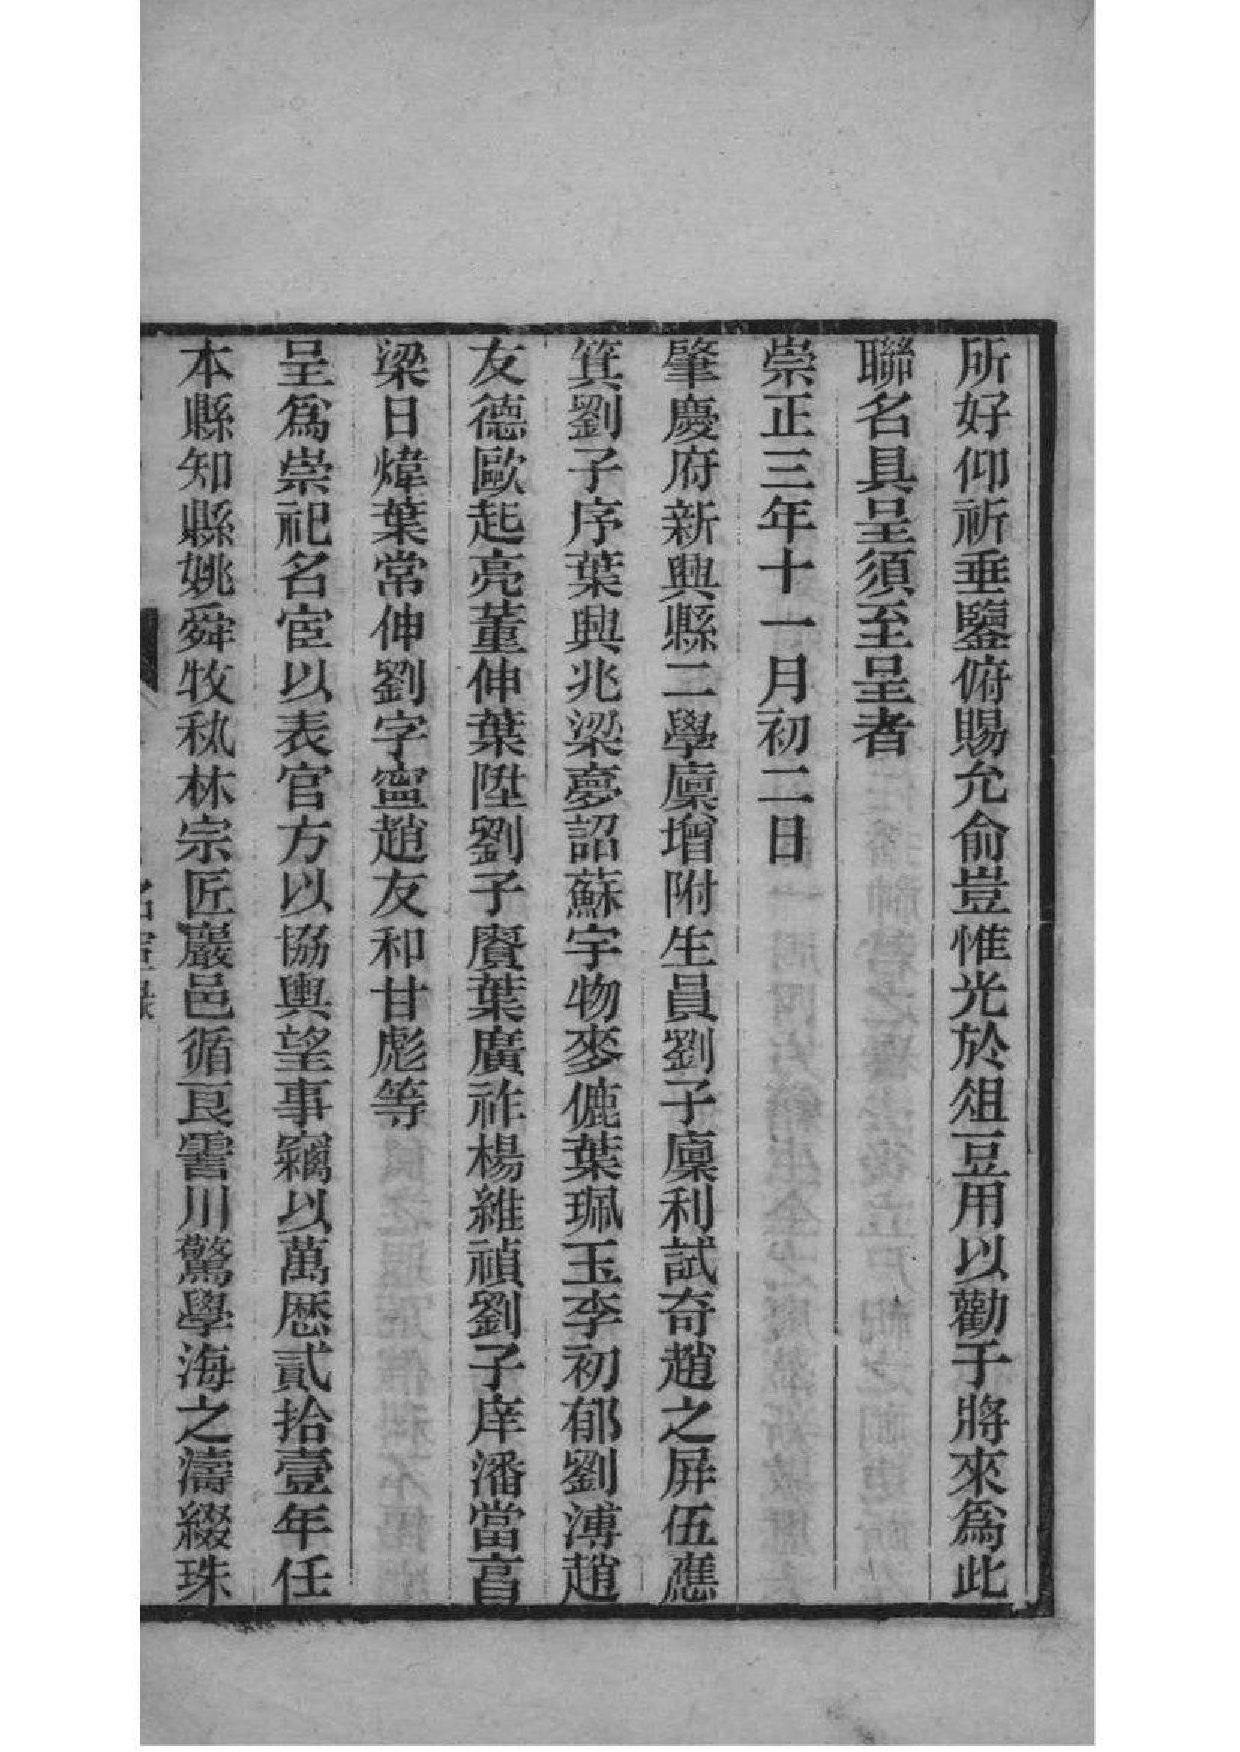 所好仰祈垂鑒俯賜允俞豈惟光於俎豆用以勸于將來爲此
聯名具呈須至呈者
崇正三年十一月初二日
肇慶府新興縣二學廩增附生員劉子廩利試奇趙之屏伍應
箕劉子序葉興兆梁夢詔蘇宇物麥㒟葉珮玉李初郁劉溥趙
友德歐起亮董伸葉陞劉子賡葉廣祚楊維禎劉子庠潘當亯
梁日煒葉常伸劉字寧趙友和甘彪等
呈爲崇祀名宦以表官方以協輿望事竊以萬歷貳拾壹年任
本縣知縣姚舜牧秇林宗匠巖邑循良霅川驚學海之濤綴珠
名宦錄